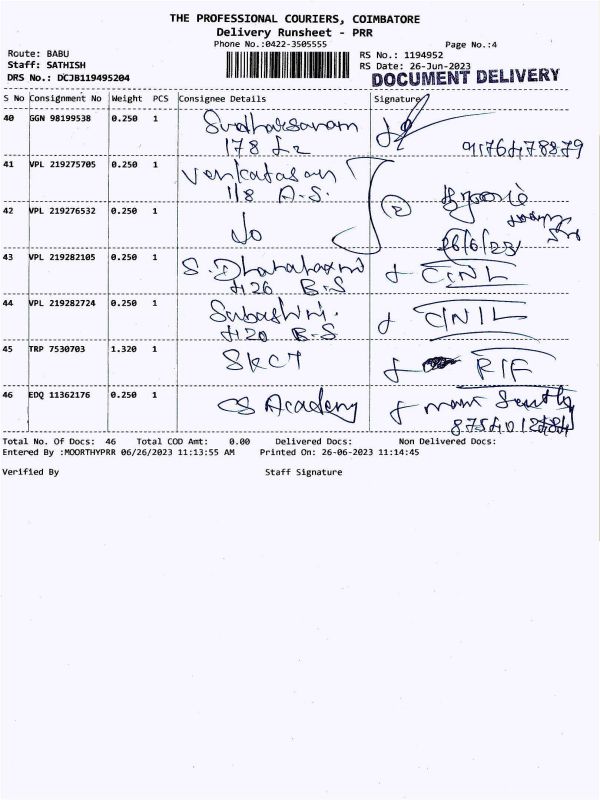 THE PROFESSIONAL COURIERS, COIMBATORE
Delivery Runsheet - PRR
Phone No.:0422-3505555 Page No.:4
Route: BABU RS No.: 1194952
Staff: SATHISH RS Date: 26-Jun-2023
DRS No.: DCJB119495204 DOCUMENT DELIVERY
S No Consignment No Weight PCS Consignee Details Signature
40 GGN 98199538 0.250 1 Sudharsanam
178 9176478879
41 VPL 219275705 0.250 1 Venkatasan
118 A.S.
42 VPL 219276532 0.250 1 Do 2
26/6/23
43 VPL 219282105 0.250 1 S. Dhanalaxmi
426 B.S
44 VPL 219282724 0.250 1 Subashini.
420 B-S
45 TRP 7530703 1.320 1 SKCT
46 EDQ 11362176 0.250 1 CS Academy
Total No. Of Docs: 46 Total COD Amt: 0.00 Delivered Docs: Non Delivered Docs:
Entered By :MOORTHYPRR 06/26/2023 11:13:55 AM Printed On: 26-06-2023 11:14:45
Verified By Staff Signature